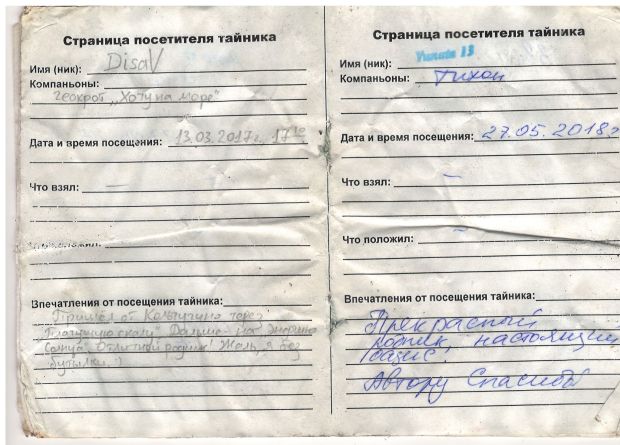 Страница посетителя тайника
Имя (ник): DisaV
Компаньоны:
геокрот „Хочу на море"
Дата и время посещения: 13.03.2017г. 17
Что взял: —
Впечатления от посещения тайника:
Пришёл от Кольчугино через
"Плачущую скалу". Дальше на
Солнца". Отличный родник! Жаль, я без
бутылки. :)
Страница посетителя тайника
Имя (ник): Yunata 13
Компаньоны: Тихон
Дата и время посещения: 27.05.2018г
Что взял: —
Что положил: —
Впечатления от посещения тайника:
Прекрасный
родник, настоящий
оазис!
Автору Спасибо